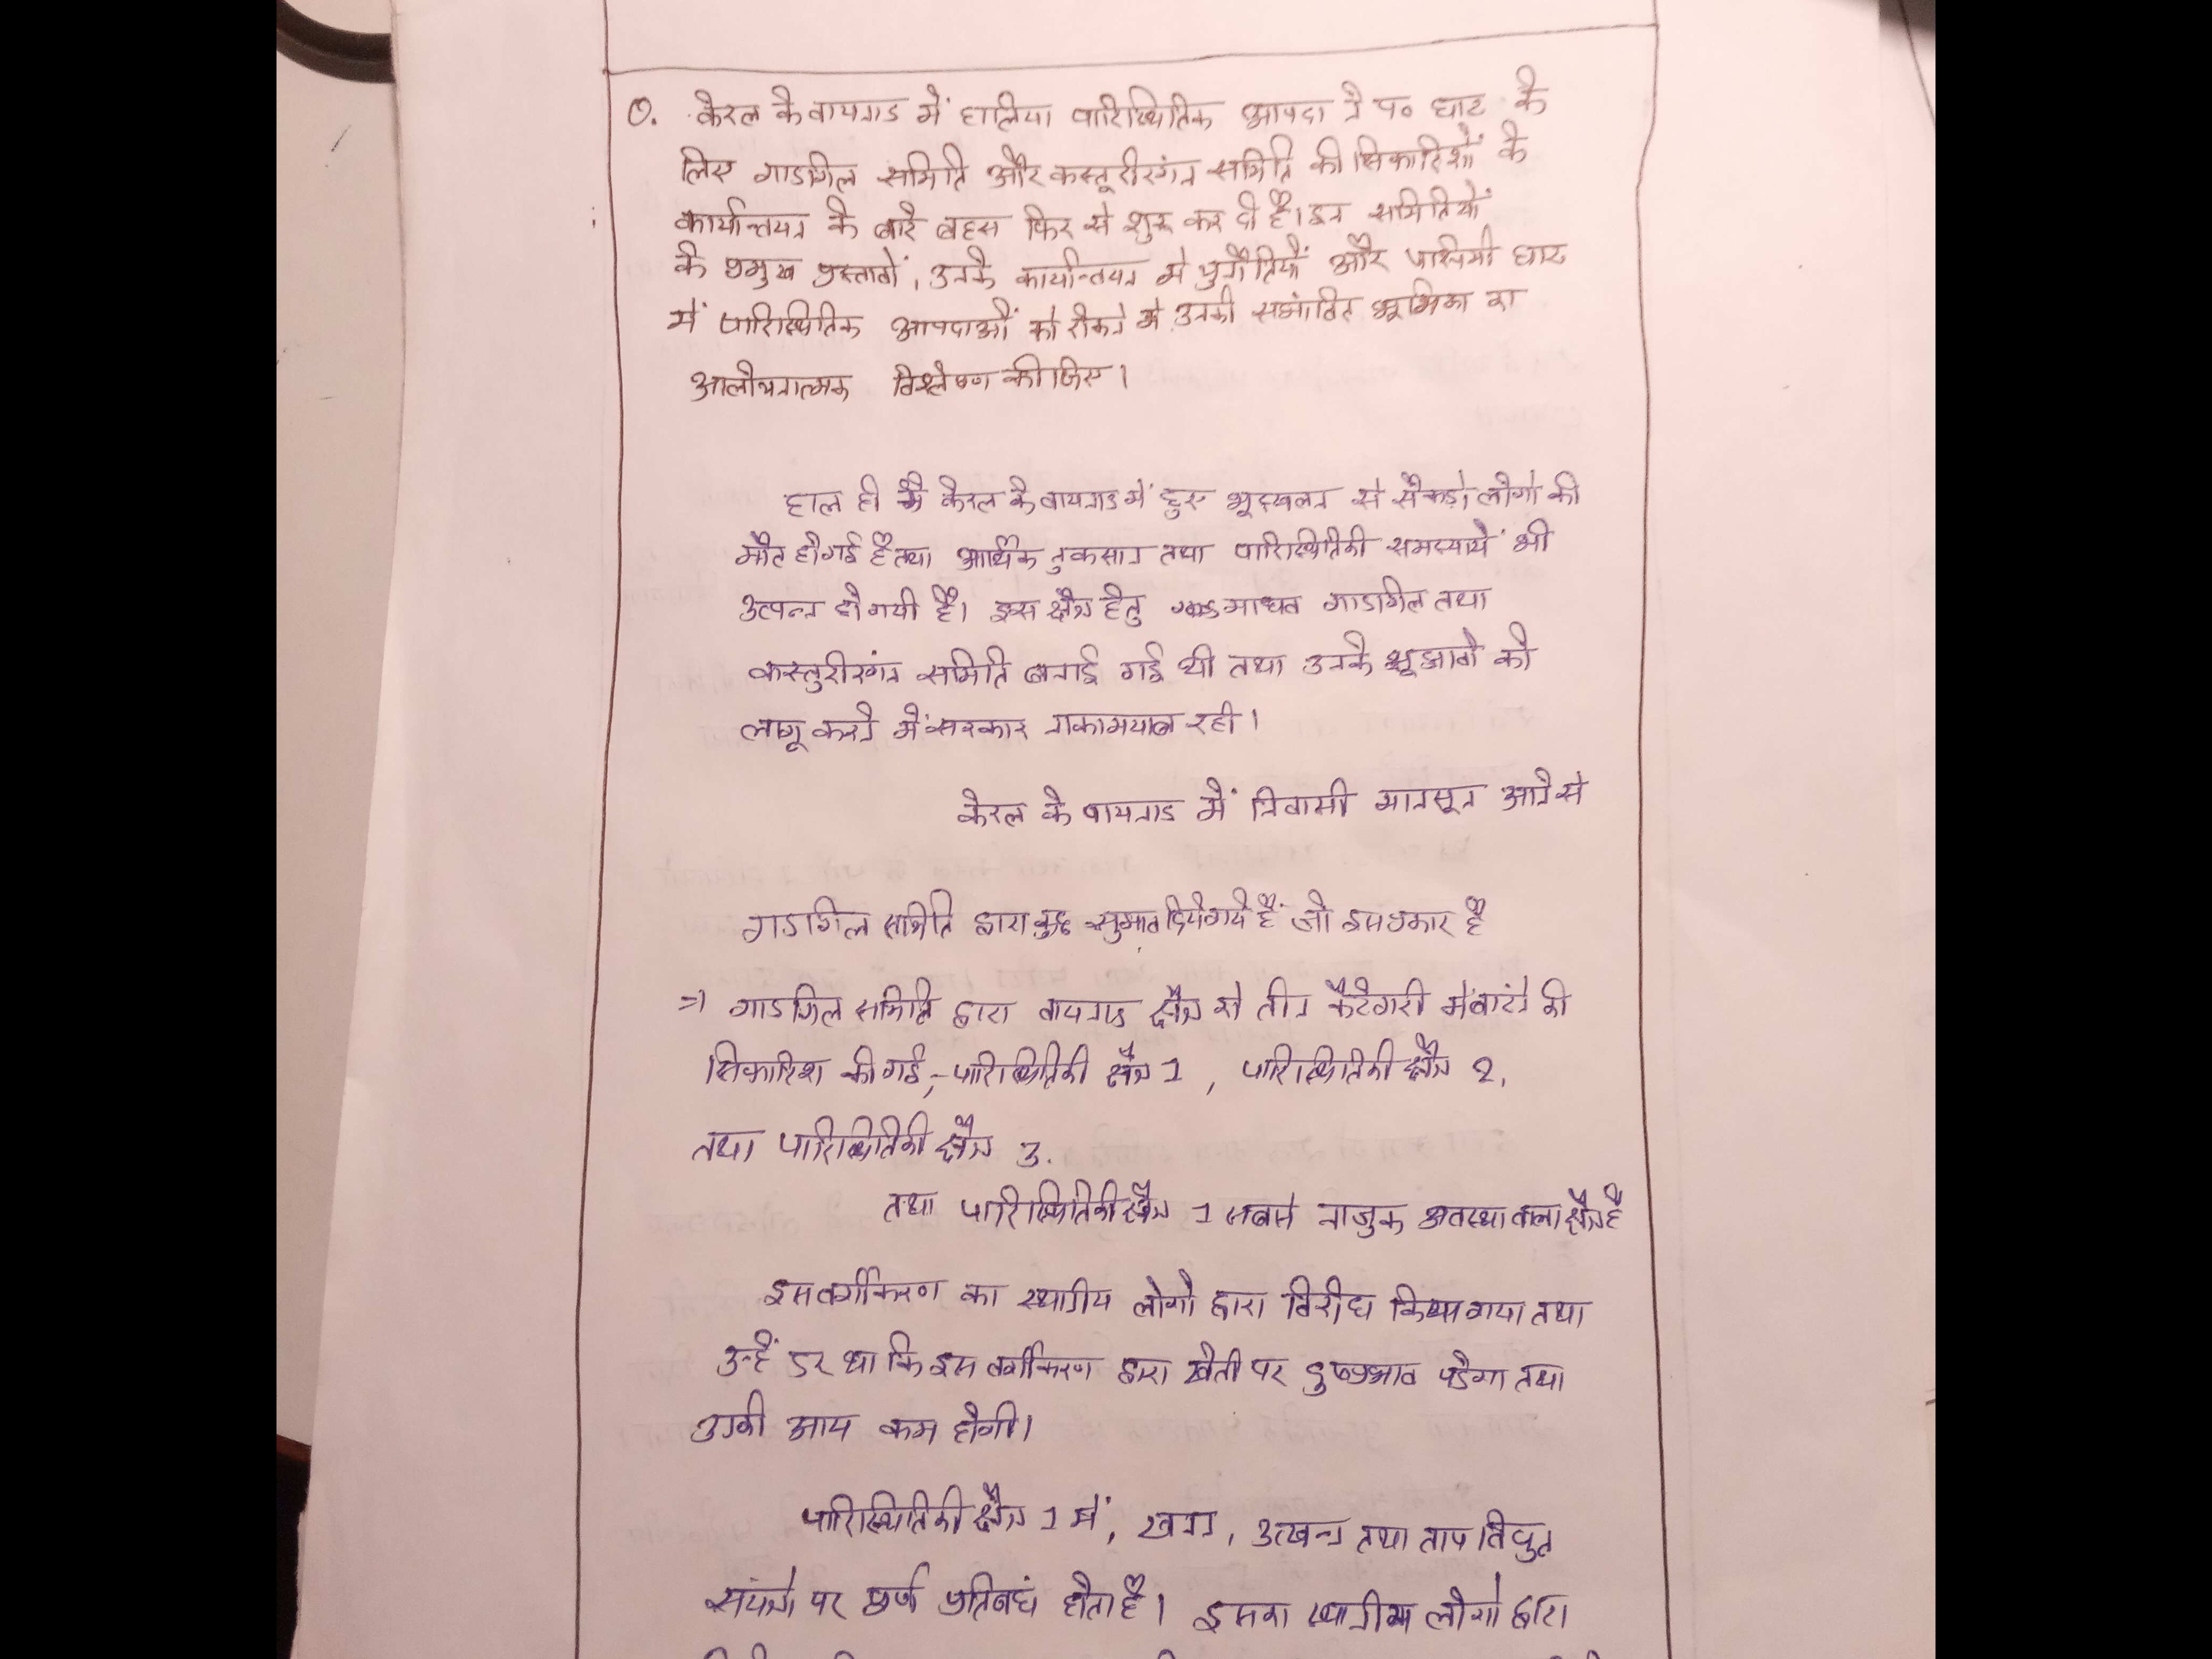 Q. केरल के वायनाड में हालिया पारिस्थितिक आपदा ने प० घाट के
लिए गाडगिल समिति और कस्तूरीरंगन समिति की सिफारिशों के
कार्यान्वयन के बारे बहस फिर से शुरू कर दी है। इन समितियों
के प्रमुख प्रस्तावों, उनके कार्यान्वयन में चुनौतियों और पश्चिमी घाट
में पारिस्थितिक आपदाओं को रोकने में उनकी संभावित भूमिका का
आलोचनात्मक विश्लेषण कीजिए।
हाल ही में केरल के वायनाड में हुए भूस्खलन से सैकड़ो लोगो की
मौत हो गई है तथा आर्थिक नुकसान तथा पारिस्थितिकी समस्यायें भी
उत्पन्न हो गयी है। इस क्षेत्र हेतु माधव गाडगिल तथा
कस्तुरीरंगन समिति बनाई गई थी तथा उनके को
लागू करने में सरकार नाकामयाब रही।
केरल के वायनाड में मानसून आने से
गाडगिल समिति द्वारा कुछ सुझाव दिये गये हैं जो इस प्रकार है
=> गाडगिल समिति द्वारा वायनाड क्षेत्र को तीन कैटेगरी में बांटने की
सिफारिश की गई,- पारिस्थितिकी क्षेत्र 1, पारिस्थितिकी क्षेत्र 2,
तथा पारिस्थितिकी क्षेत्र 3.
तथा पारिस्थितिकी क्षेत्र 1 सबसे नाजुक अवस्था वाला क्षेत्र है
इस वर्गीकरण का स्थानीय लोगो द्वारा विरोध किया गया तथा
उन्हें डर था कि इस वर्गीकरण द्वारा खेती पर दुष्प्रभाव पडेगा तथा
उनकी आय कम होगी।
पारिस्थितिकी क्षेत्र 1 में, खनन, उत्खनन तथा ताप विद्युत
संयंत्रो पर पूर्ण प्रतिबंध होता है। इसका स्थानीय लोगो द्वारा